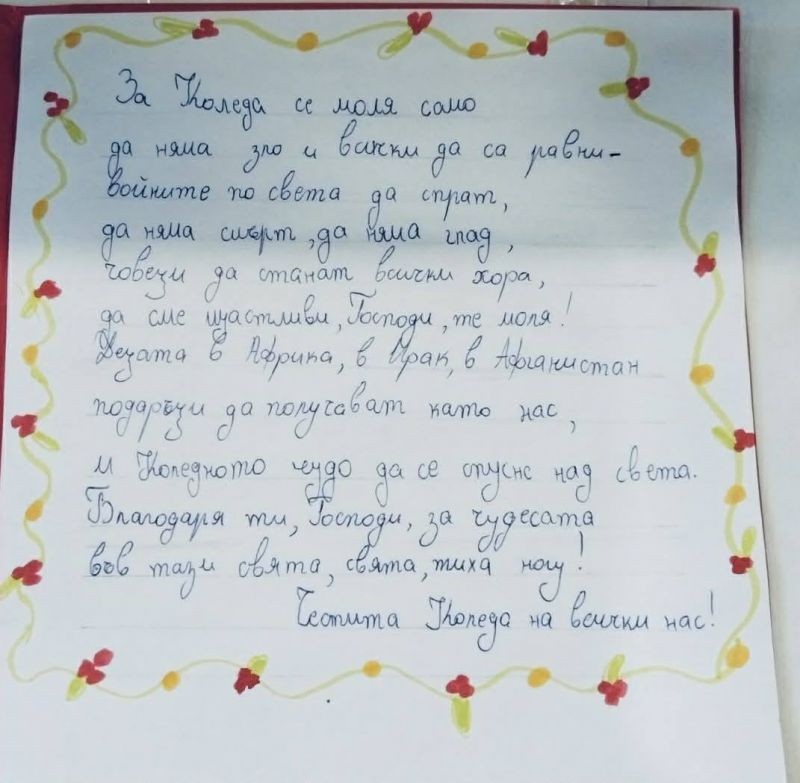 За Коледа се моля само
да няма зло и всички да са равни-
войните по света да спрат,
да няма смърт, да няма глад,
човеци да станат всички хора,
да сме щастливи, Господи, те моля!
Децата в Африка, в Ирак, в Афганистан
подаръци да получават като нас,
и Коледното чудо да се спусне над света.
Благодаря ти, Господи, за чудесата
във тази свята, свята, тиха нощ!
Честита Коледа на всички нас!